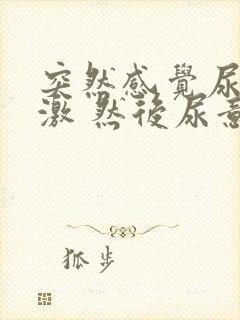 突然感覺尿
激 然後尿意
狐步